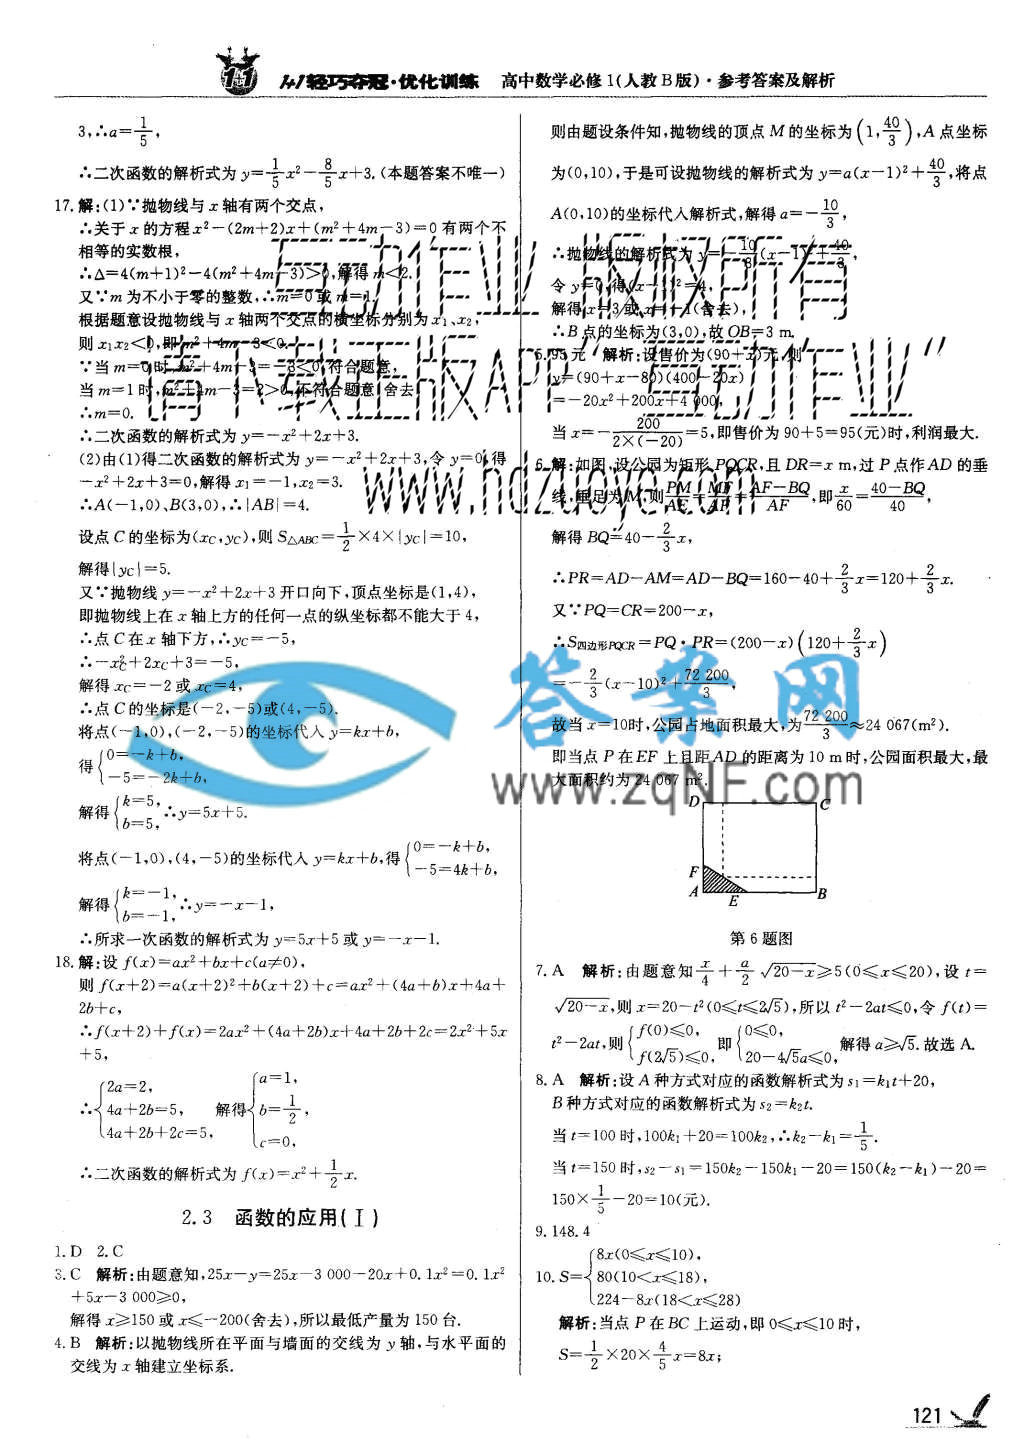 1+1轻巧夺冠·优化训练 高中数学必修1(人教B版)·参考答案及解析
3,∴a=1/5,
∴二次函数的解析式为 y=1/5x²-8/5x+3.(本题答案不唯一)
17.解:(1)∵抛物线与x轴有两个交点,
∴关于x的方程x²-(2m+2)x+(m²+4m-3)=0有两个不
相等的实数根,
∴Δ=4(m+1)²-4(m²+4m-3)>0,解得m<2.
又∵m为不小于零的整数,∴m=0或m=1.
根据题意设抛物线与x轴两个交点的横坐标分别为x₁、x₂,
则x₁x₂<0,即m²+4m-3<0.
∵当m=0时,m²+4m-3=-3<0,符合题意,
当m=1时,m²+4m-3=2>0,不符合题意,舍去
∴m=0.
∴二次函数的解析式为y=-x²+2x+3.
(2)由(1)得二次函数的解析式为y=-x²+2x+3,令y=0,得
-x²+2x+3=0,解得x₁=-1,x₂=3.
∴A(-1,0)、B(3,0),∴|AB|=4.
设点C的坐标为(xC,yC),则S△ABC=1/2×4×|yC|=10,
解得|yC|=5.
又∵抛物线y=-x²+2x+3开口向下,顶点坐标是(1,4),
即抛物线上在x轴上方的任何一点的纵坐标都不能大于4,
∴点C在x轴下方,∴yC=-5,
∴-xC²+2xC+3=-5,
解得xC=-2或xC=4,
∴点C的坐标是(-2,-5)或(4,-5).
将点(-1,0),(-2,-5)的坐标代入y=kx+b,
得{0=-k+b, -5=-2k+b,
解得{k=5, b=5, ∴y=5x+5.
将点(-1,0),(4,-5)的坐标代入y=kx+b,得{0=-k+b, -5=4k+b,
解得{k=-1, b=-1, ∴y=-x-1,
∴所求一次函数的解析式为y=5x+5或y=-x-1.
18.解:设f(x)=ax²+bx+c(a≠0),
则f(x+2)=a(x+2)²+b(x+2)+c=ax²+(4a+b)x+4a+
2b+c,
∴f(x+2)+f(x)=2ax²+(4a+2b)x+4a+2b+2c=2x²+5x
+5,
∴{2a=2, 4a+2b=5, 4a+2b+2c=5, 解得{a=1, b=1/2, c=0,
∴二次函数的解析式为f(x)=x²+1/2x.
2.3 函数的应用(Ⅰ)
1.D 2.C
3.C 解析:由题意知,25x-y=25x-3 000-20x+0.1x²=0.1x²
+5x-3 000≥0,
解得x≥150或x≤-200(舍去),所以最低产量为150台.
4.B 解析:以抛物线所在平面与墙面的交线为y轴,与水平面的
交线为x轴建立坐标系.
则由题设条件知,抛物线的顶点M的坐标为(1,40/3),A点坐标
为(0,10),于是可设抛物线的解析式为y=a(x-1)²+40/3,将点
A(0,10)的坐标代入解析式,解得a=-10/3,
∴抛物线的解析式为y=-10/3(x-1)²+40/3,
令y=0,得(x-1)²=4,
解得x=3或x=-1(舍去),
∴B点的坐标为(3,0),故OB=3 m.
5.95元 解析:设售价为(90+x)元,则
y=(90+x-80)(400-20x)
=-20x²+200x+4 000,
当x=-200/2×(-20)=5,即售价为90+5=95(元)时,利润最大.
6.解:如图,设公园为矩形PQCR,且DR=x m,过P点作AD的垂
线,垂足为M,则PM/AE=MF/AF=AF-BQ/AF,即x/60=40-BQ/40,
解得BQ=40-2/3x,
∴PR=AD-AM=AD-BQ=160-40+2/3x=120+2/3x.
又∵PQ=CR=200-x,
∴S四边形PQCR=PQ·PR=(200-x)(120+2/3x)
=-2/3(x-10)²+72 200/3,
故当x=10时,公园占地面积最大,为72 200/3≈24 067(m²).
即当点P在EF上且距AD的距离为10 m时,公园面积最大,最
大面积约为24 067 m².
D C
F
A E B
第6题图
7.A 解析:由题意知x/4+a/2√20-x≥5(0≤x≤20),设t=
√20-x,则x=20-t²(0≤t≤2√5),所以t²-2at≤0,令f(t)=
t²-2at,则{f(0)≤0, f(2√5)≤0, 即{0≤0, 20-4√5a≤0, 解得a≥√5.故选A.
8.A 解析:设A种方式对应的函数解析式为s₁=k₁t+20,
B种方式对应的函数解析式为s₂=k₂t.
当t=100时,100k₁+20=100k₂,∴k₂-k₁=1/5.
当t=150时,s₂-s₁=150k₂-150k₁-20=150(k₂-k₁)-20=
150×1/5-20=10(元).
9.148.4
10.S={8x(0≤x≤10), 80(10<x≤18), 224-8x(18<x≤28)
解析:当点P在BC上运动,即0≤x≤10时,
S=1/2×20×4/5x=8x;
121
互动作业"版权所有
请下载正版APP"互动作业"
www.hdzuoye.com
答案网
www.zqNF.com